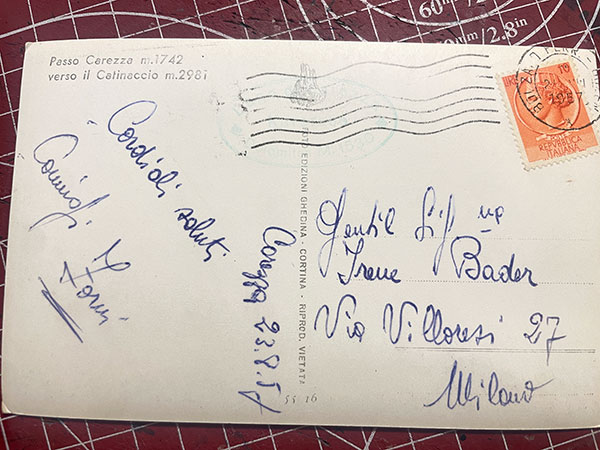 Passo Carezza m.1742
verso il Catinaccio m.2981
Cordiali saluti
Carezza 23.8.57
Gentil Sig.na
Irene Bader
Via Villoresi 27
Milano
EDIZIONI GHEDINA - CORTINA - RIPROD. VIETATA
REPUBBLICA
ITALIANA
60°
10mm/2.8in